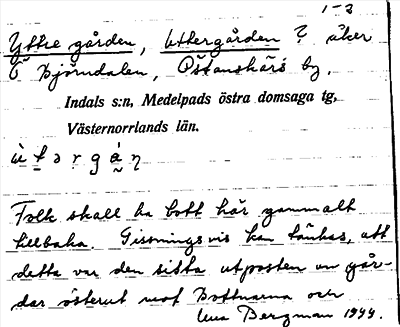 1-3
Yttre gården, Uttergården ? åker
Ö Björndalen, Östanskärs by,
Indals s:n, Medelpads östra domsaga tg,
Västernorrlands län.
ù t ə r g á ŋ
Folk skall ha bott här gammalt
tillbaka. Gissningsvis kan tänkas, att
detta var den sista utposten av går-
dar österut mot Bottnarna och
Bergman 1944.